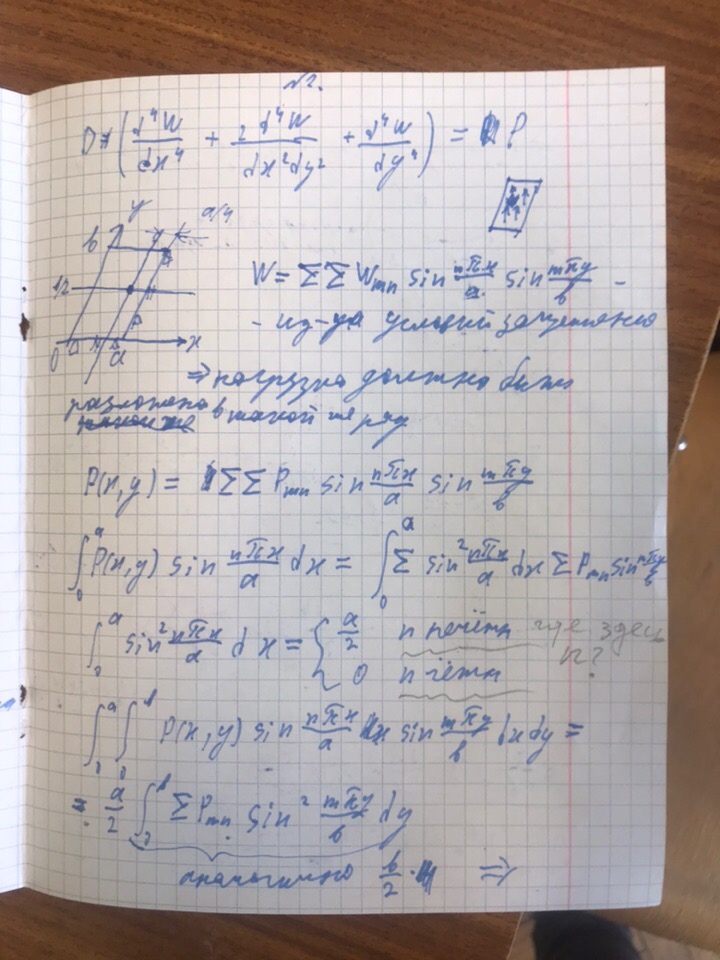 №2.
D*(d⁴W/dx⁴ + 2 d⁴W/dx²dy² + d⁴W/dy⁴) = P
y a/4
b
W = ΣΣ Wmn sin nπx/a sin mπy/b -
0 a x
- из-за условий защемления
⇒ нагрузка должна быть
разложена в такой же ряд.
P(x,y) = ΣΣ Pmn sin nπx/a sin mπy/b
∫₀ᵃ P(x,y) sin nπx/a dx = ∫₀ᵃ Σ sin² nπx/a dx Σ Pmn sin mπy/b
∫₀ᵃ sin² nπx/a dx = { a/2 n нечётн где здесь
0 n чётн n?
∫₀ᵃ ∫₀ᵇ P(x,y) sin nπx/a sin mπy/b dxdy =
= a/2 ∫₀ᵇ Σ Pmn sin² mπy/b dy
аналогично b/2 · ⇒